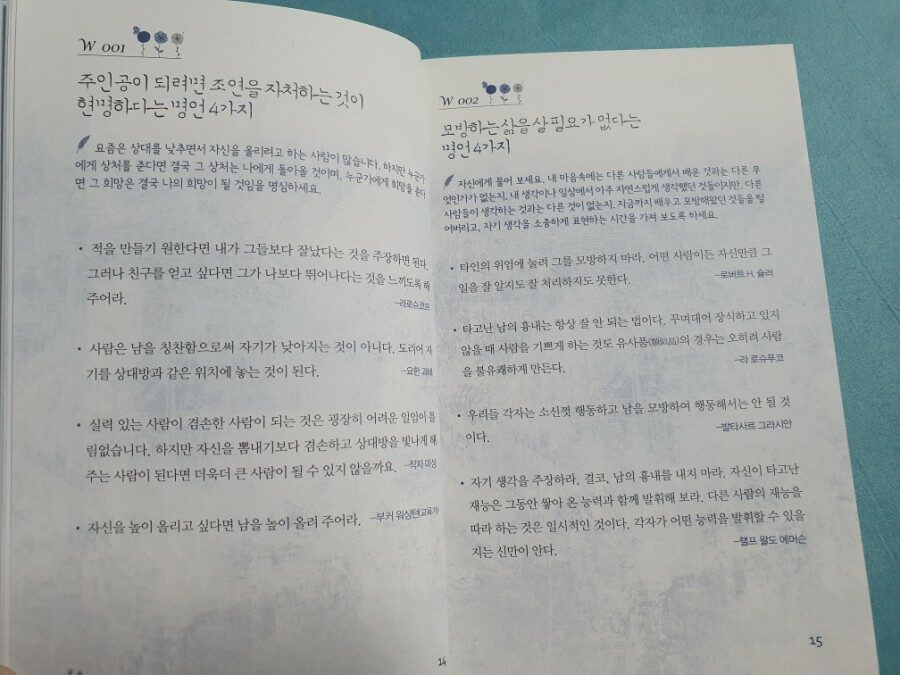 W 001
주인공이 되려면 조연을 자처하는 것이
현명하다는 명언 4가지
요즘은 상대를 낮추면서 자신을 올리려고 하는 사람이 많습니다. 하지만 누군가
에게 상처를 준다면 결국 그 상처는 나에게 돌아올 것이며, 누군가에게 희망을 준다
면 그 희망은 결국 나의 희망이 될 것임을 명심하세요.
• 적을 만들기 원한다면 내가 그들보다 잘났다는 것을 주장하면 된다.
그러나 친구를 얻고 싶다면 그가 나보다 뛰어나다는 것을 느끼도록 해
주어라. –라로슈코프
• 사람은 남을 칭찬함으로써 자기가 낮아지는 것이 아니다. 도리어 자
기를 상대방과 같은 위치에 놓는 것이 된다. –요한 괴테
• 실력 있는 사람이 겸손한 사람이 되는 것은 굉장히 어려운 일임이 틀
림없습니다. 하지만 자신을 뽐내기보다 겸손하고 상대방을 빛나게 해
주는 사람이 된다면 더욱더 큰 사람이 될 수 있지 않을까요. –작자 미상
• 자신을 높이 올리고 싶다면 남을 높이 올려 주어라. –부커 워싱턴(교육가)
14
W 002
모방하는 삶을 살 필요가 없다는
명언 4가지
자신에게 물어 보세요. 내 마음속에는 다른 사람들에게서 배운 것과는 다른 무
엇인가가 없는지, 내 생각이나 일상에서 아주 자연스럽게 생각했던 것들이지만, 다른
사람들이 생각하는 것과는 다른 것이 없는지. 지금까지 배우고 모방해왔던 것들을 털
어버리고, 자기 생각을 소중하게 표현하는 시간을 가져 보도록 하세요.
• 타인의 위엄에 눌려 그를 모방하지 마라. 어떤 사람이든 자신만큼 그
일을 잘 알지도 잘 처리하지도 못한다. –로버트 H. 슐러
• 타고난 남의 흉내는 항상 잘 안 되는 법이다. 꾸며대어 장식하고 있지
않을 때 사람을 기쁘게 하는 것도 유사품(類似品)의 경우는 오히려 사람
을 불유쾌하게 만든다. –라 로슈푸코
• 우리들 각자는 소신껏 행동하고 남을 모방하여 행동해서는 안 될 것
이다. –발타사르 그라시안
• 자기 생각을 주장하라. 결코, 남의 흉내를 내지 마라. 자신이 타고난
재능은 그동안 쌓아 온 능력과 함께 발휘해 보라. 다른 사람의 재능을
따라 하는 것은 일시적인 것이다. 각자가 어떤 능력을 발휘할 수 있을
지는 신만이 안다. –랠프 월도 에머슨
15